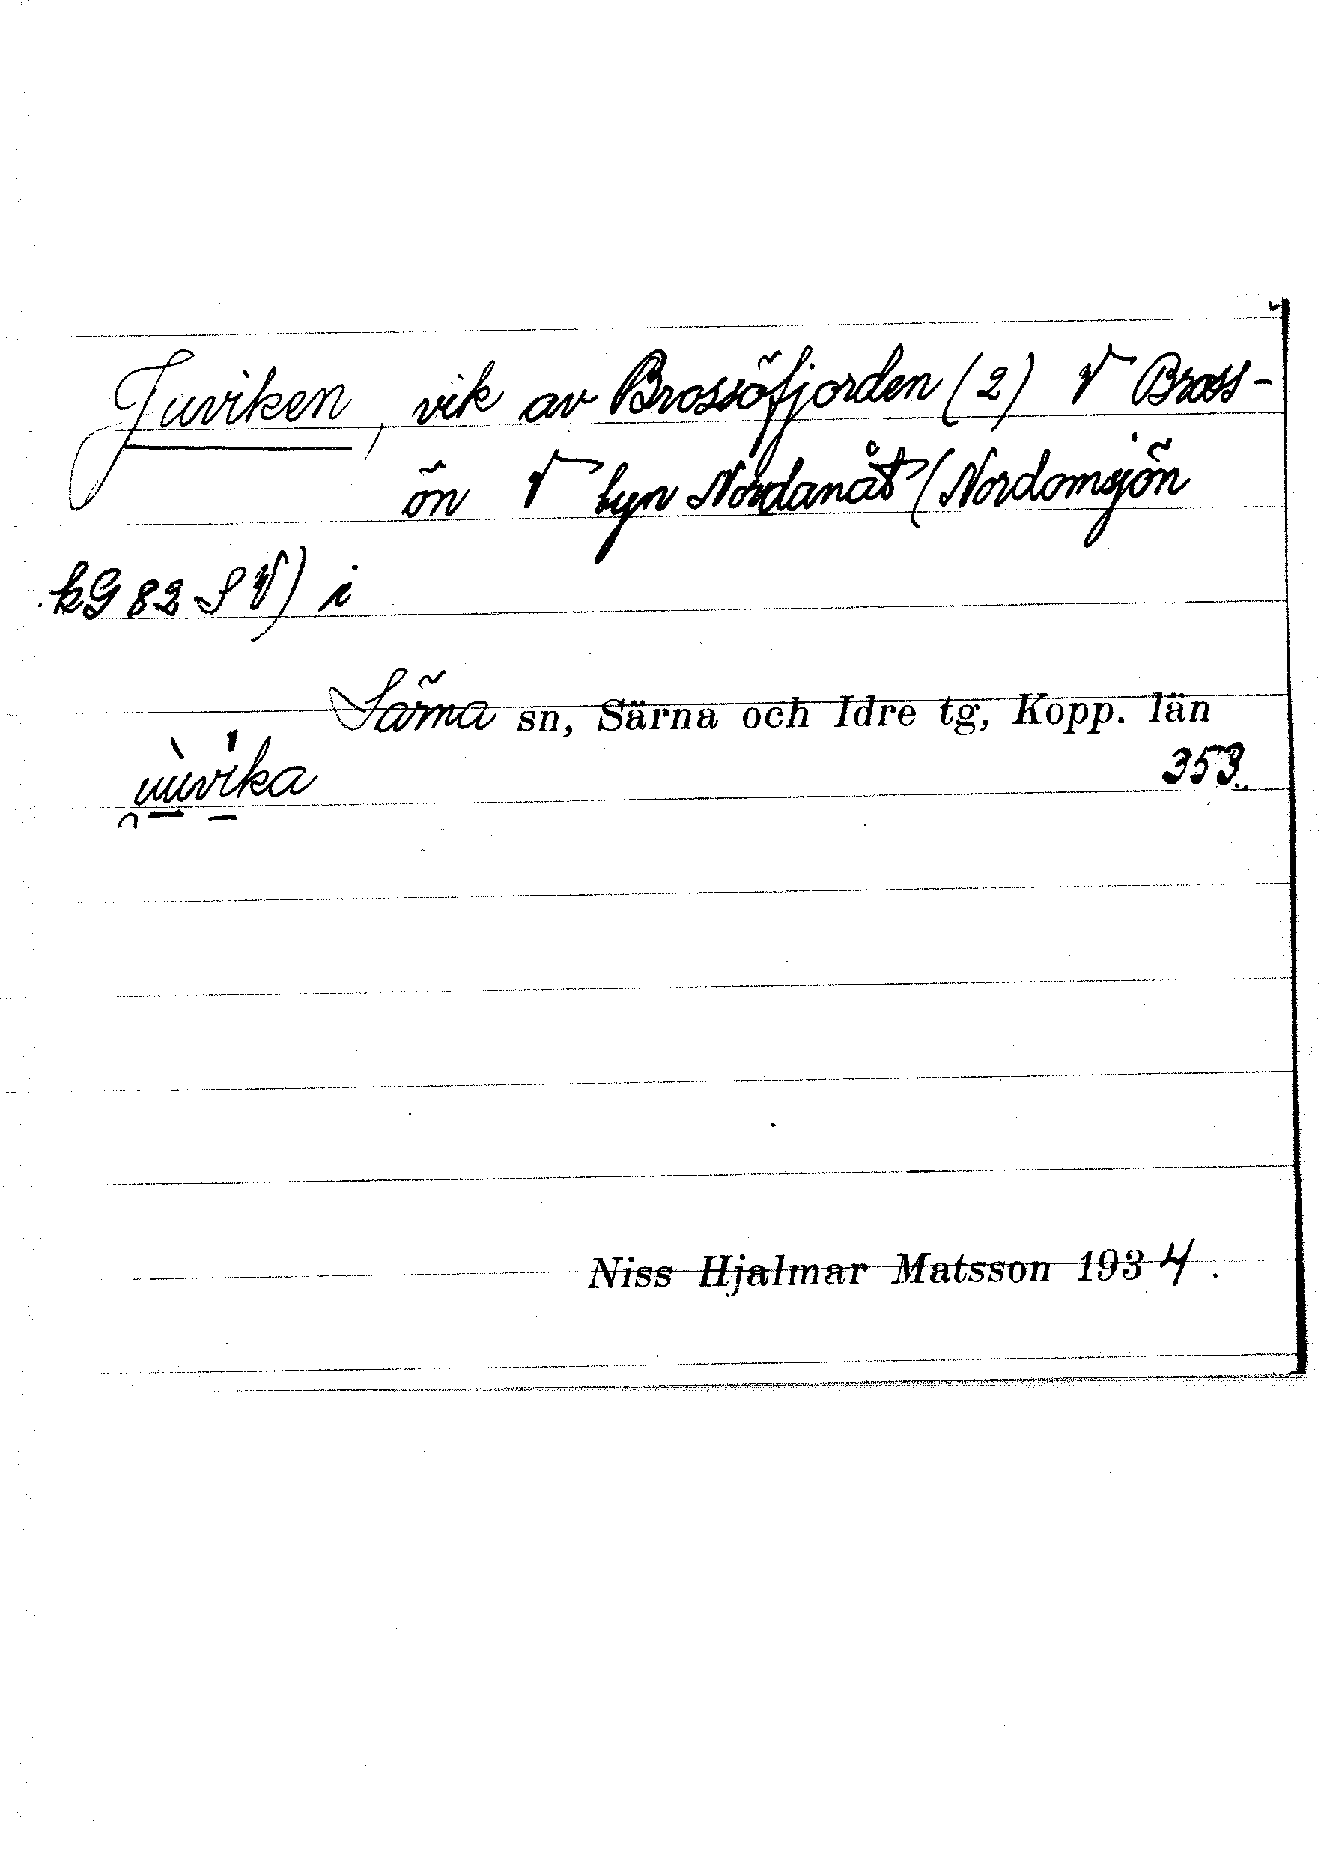 Juviken, vik av Brossöfjorden (2) V Bross-
ön V byn Nordanåt (Nordomsjön
kG 82 SV) i
Särna sn, Särna och Idre tg, Kopp. län
353.
Niss Hjalmar Matsson 1934.